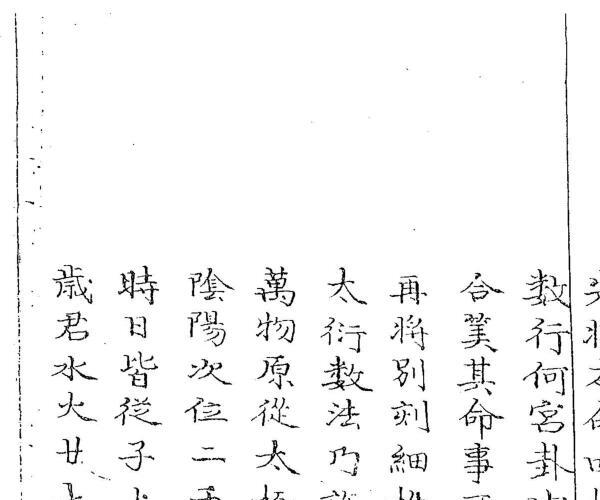 將
數行何宮卦
合筭其命事
再將別刻細推
太衍數法乃
萬物原從太極
陰陽次位二
時日皆從子
歲君水火廿